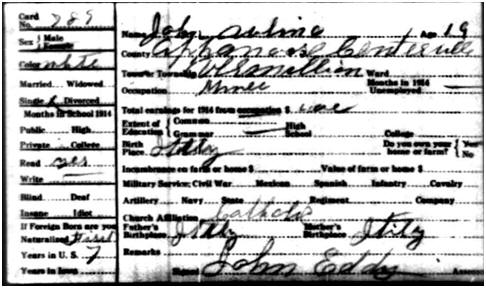 Card No. 789
Sex { Male Female
Color White
Married Widowed
Single Divorced
Months in School 1914
Public High
Private College
Read yes
Write
Blind Deaf
Insane Idiot
If Foreign Born are you Naturalized
Years in U. S. 7
Years in Iowa
Name John Age 19
County Appanoose Centerville
Town or Township Vermillion Ward
Occupation Miner Months in 1914 Unemployed
Total earnings for 1914 from occupation $
Extent of Education { Common High School
Grammar College
Birth Place Italy Do you own your home or farm? { Yes No
Incumbrance on farm or home $ Value of farm or home $
Military Service: Civil War Mexican Spanish Infantry Cavalry
Artillery Navy State Regiment Company
Church Affiliation Catholic
Father's Birthplace Italy Mother's Birthplace Italy
Remarks
Signed John Eddy Assessor